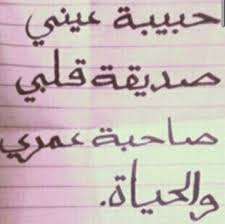 حبيبة عيني
صديقة قلبي
صاحبة عمري
والحياة.